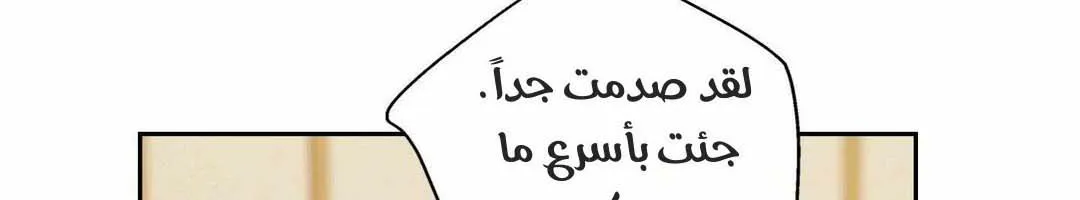 لقد صدمت جداً.
جئت بأسرع ما